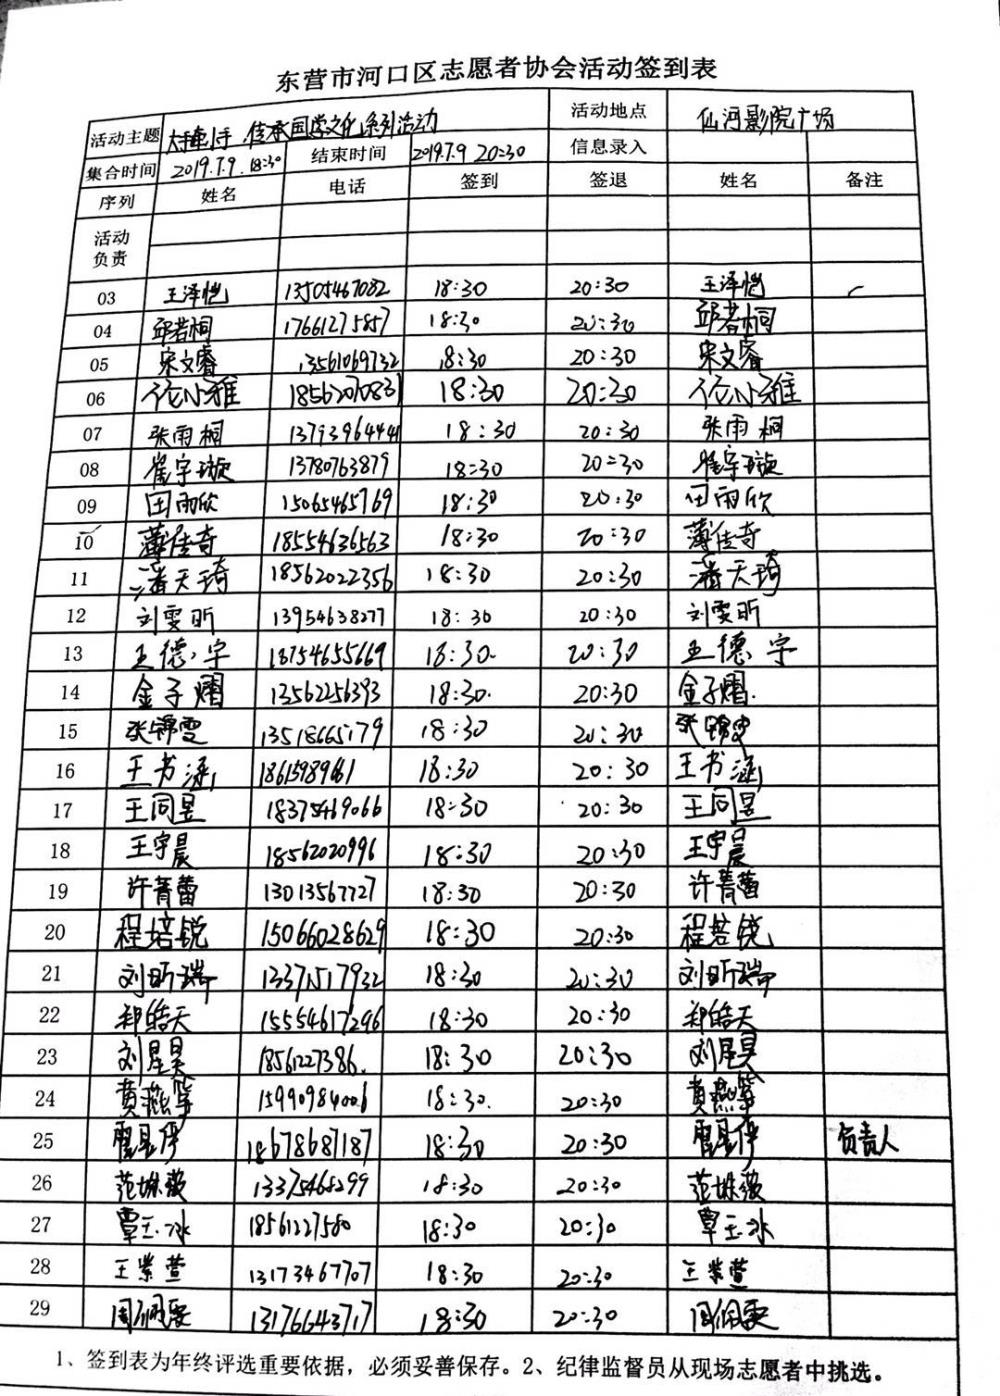 东营市河口区志愿者协会活动签到表
活动主题 大手牵小手 传承国学文化系列活动 活动地点 仙河影院广场
集合时间 2019.7.9. 18:30 结束时间 2019.7.9 20:30 信息录入
序列 姓名 电话 签到 签退 姓名 备注
活动
负责
03 王泽恺 13505467082 18:30 20:30 王泽恺
04 邱若桐 17661275857 18:30 20:30 邱若桐
05 宋文睿 13561069732 18:30 20:30 宋文睿
06 伦小雅 18562070831 18:30 20:30 伦小雅
07 张雨桐 13793964441 18:30 20:30 张雨桐
08 崔宇璇 13780763879 18:30 20:30 崔宇璇
09 田雨欣 15065465769 18:30 20:30 田雨欣
10 薄佳奇 18554636563 18:30 20:30 薄佳奇
11 潘天琦 18562022356 18:30 20:30 潘天琦
12 刘雯昕 13954638277 18:30 20:30 刘雯昕
13 王德宇 13754655669 18:30 20:30 王德宇
14 金子熠 13562256393 18:30 20:30 金子熠
15 张锦雯 13518665179 18:30 20:30 张锦雯
16 王书涵 1861598961 18:30 20:30 王书涵
17 王同昱 18375469066 18:30 20:30 王同昱
18 王宇晨 18562020996 18:30 20:30 王宇晨
19 许菁蕾 13013567727 18:30 20:30 许菁蕾
20 程培锐 15066028629 18:30 20:30 程培锐
21 刘昕瑞 13371517932 18:30 20:30 刘昕瑞
22 郑皓天 15554617296 18:30 20:30 郑皓天
23 刘星昊 18561227386 18:30 20:30 刘星昊
24 黄燕 15990984006 18:30 20:30 黄燕
25 18678687187 18:30 20:30 负责人
26 范姝薇 13375468299 18:30 20:30 范姝薇
27 覃玉冰 18561227580 18:30 20:30 覃玉冰
28 王紫萱 13173467707 18:30 20:30 王紫萱
29 周佩雯 13176643717 18:30 20:30 周佩雯
1、签到表为年终评选重要依据，必须妥善保存。2、纪律监督员从现场志愿者中挑选。